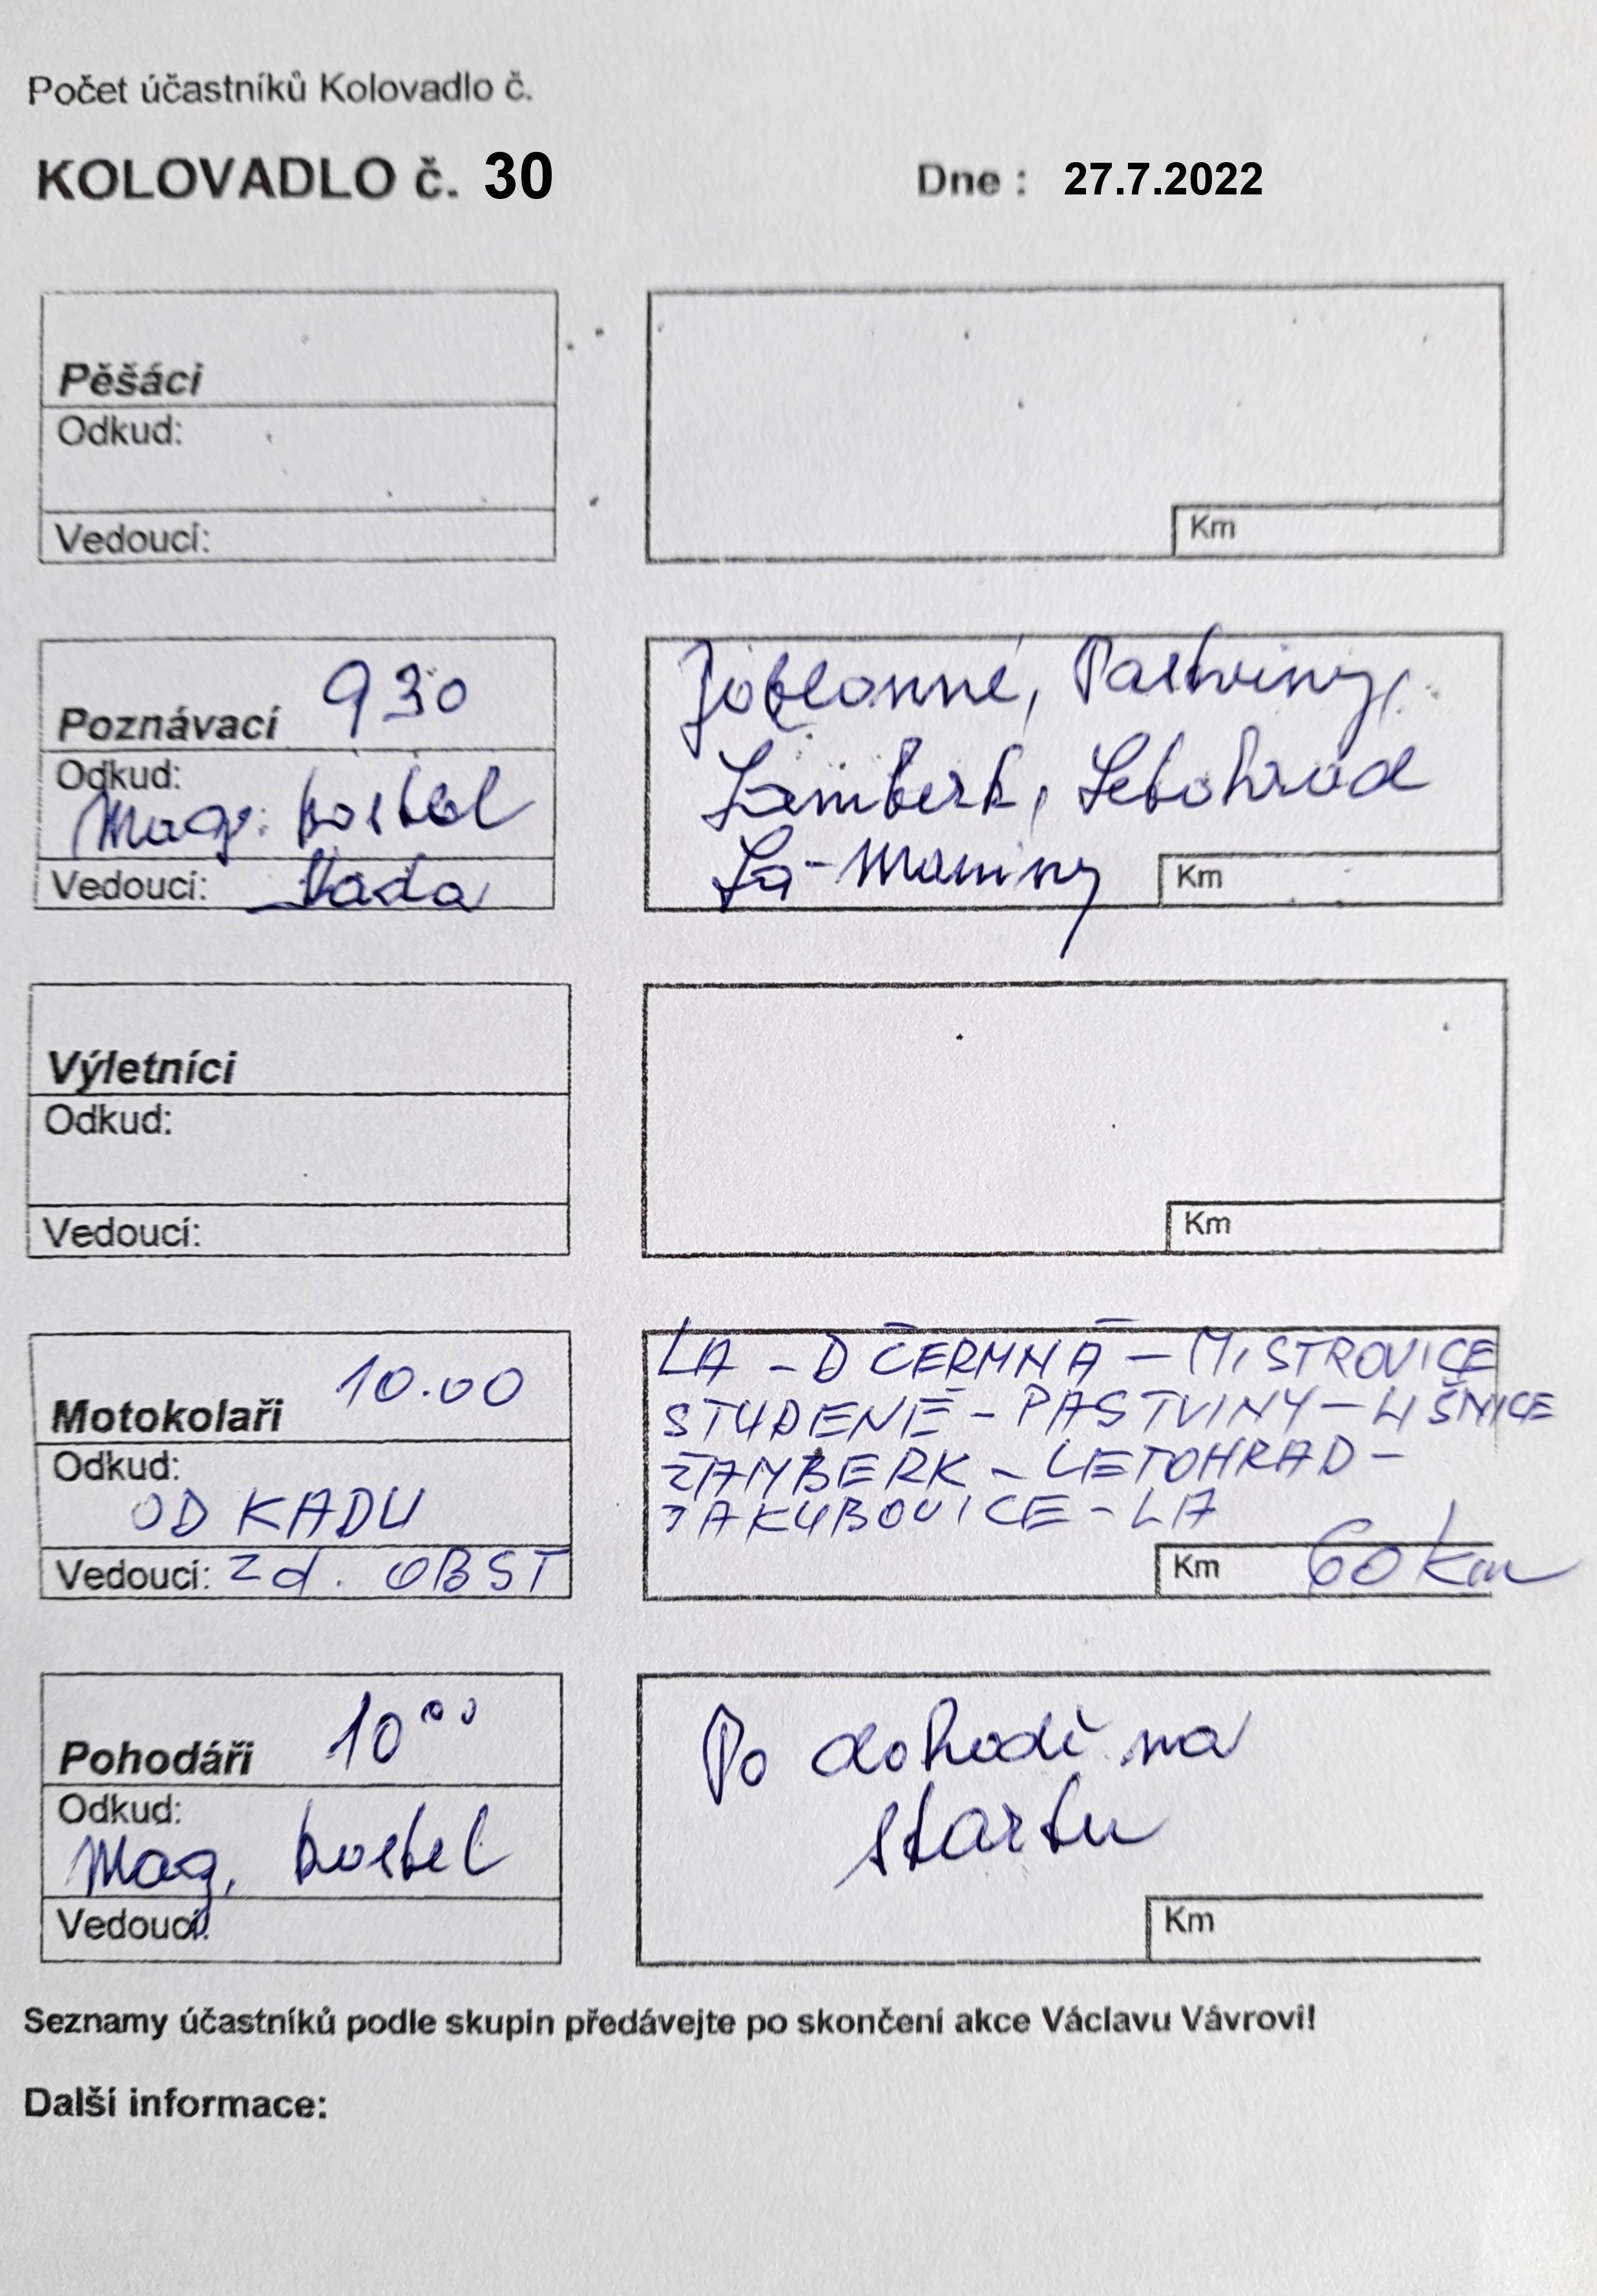 Počet účastníků Kolovadlo č.
KOLOVADLO č. 30
Dne : 27.7.2022
Pěšáci
Odkud:
Vedoucí:
Km
Poznávací 930
Odkud:
Mag. kostel
Vedoucí:
Jablonné, Pastviny,
Žamberk, Letohrad
La-Mariny
Km
Výletníci
Odkud:
Vedoucí:
Km
Motokolaři 10.00
Odkud:
OD KADU
Vedoucí: Zd. OBST
LA - D ČERMNÁ - MISTROVICE
STUDENÉ - PASTVINY - LIŠNICE
ŽAMBERK - LETOHRAD -
JAKUBOVICE - LA
Km 60 km
Pohodáři 10 00
Odkud:
Mag. kostel
Vedoucí:
Po dohodě na
startu
Km
Seznamy účastníků podle skupin předávejte po skončení akce Václavu Vávrovi!
Další informace: